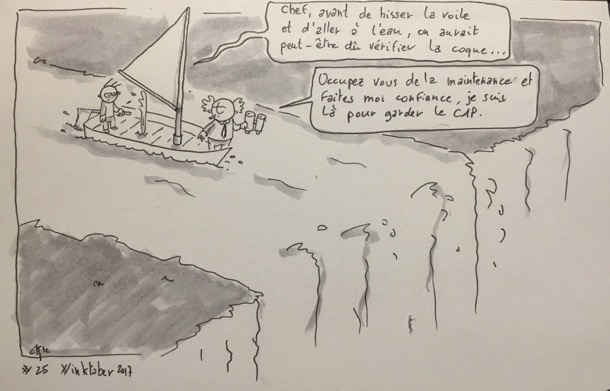 Chef, avant de hisser la voile
et d'aller à l'eau, on aurait
peut-être dû vérifier la coque...
Occupez vous de la maintenance et
faites moi confiance, je suis
là pour garder le CAP.
# 25 #inktober 2017